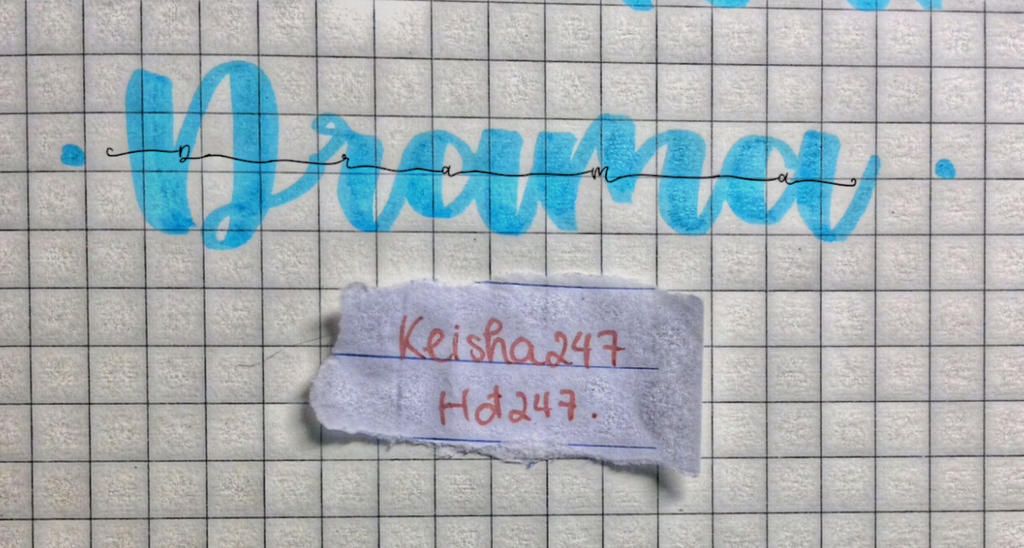 • Drama •
D r a m a
Keisha247
Hdt247.